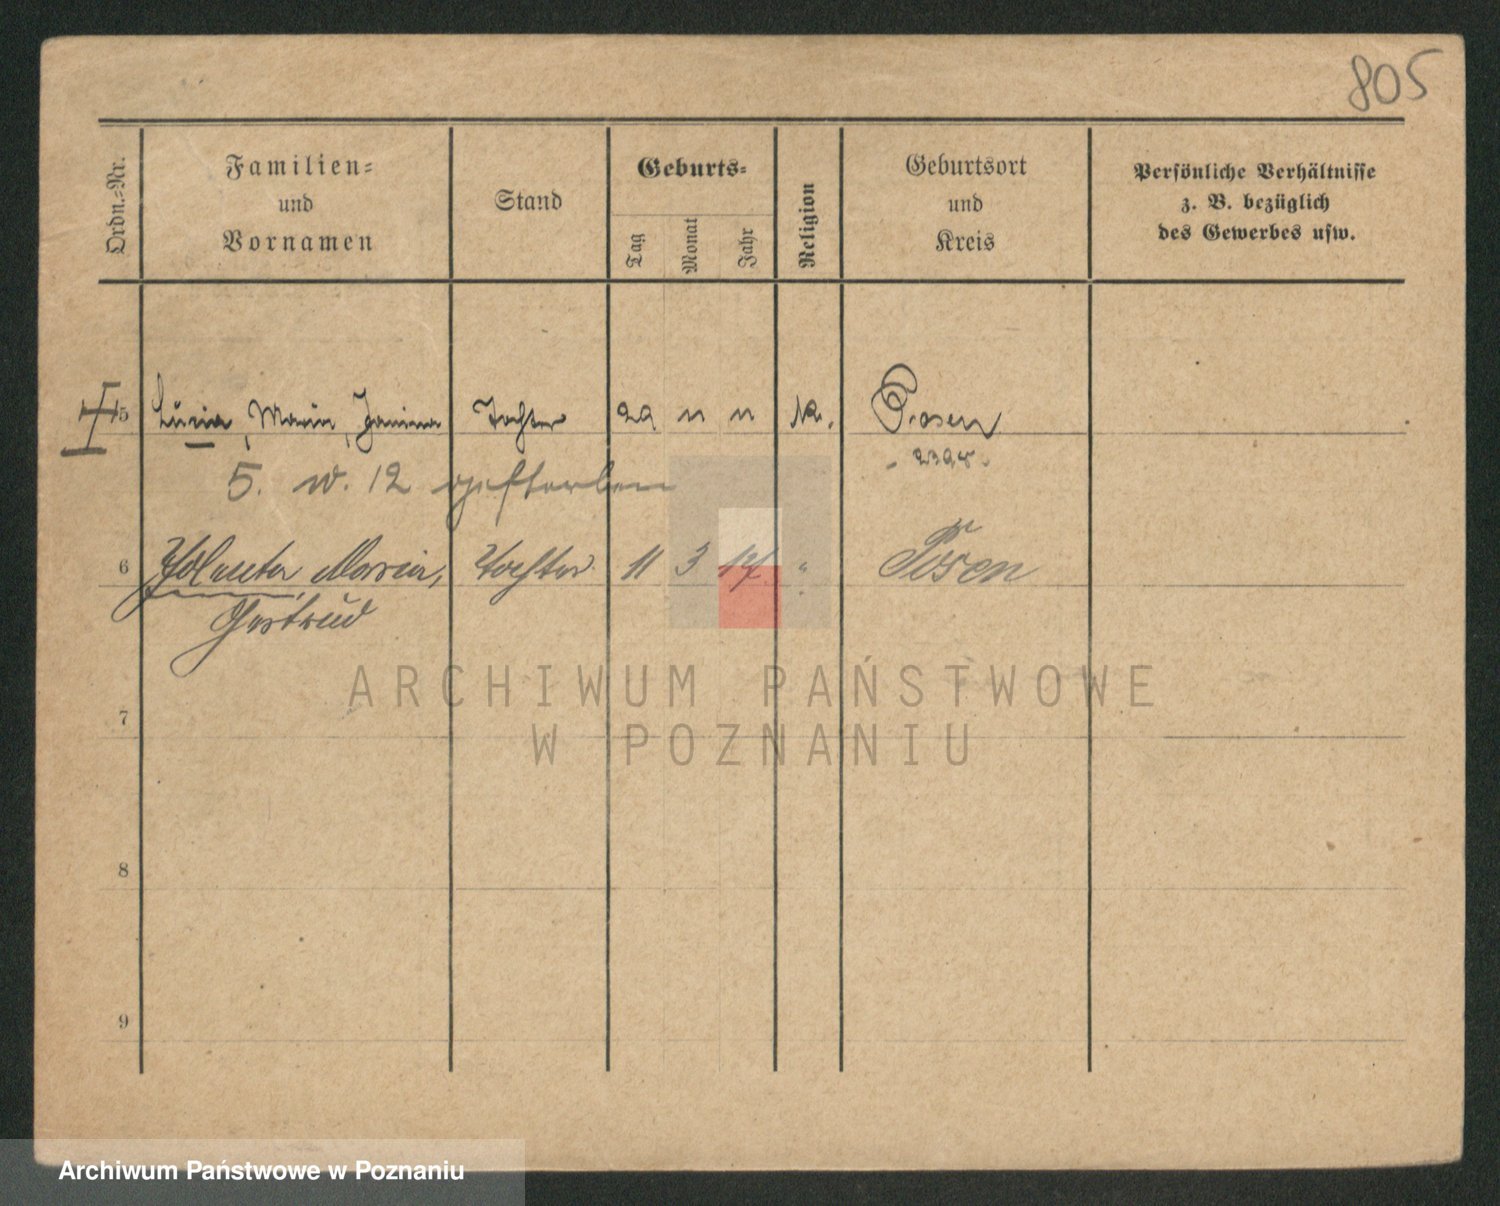 805
Ordn.-Nr.
Familien-
und
Vornamen
Stand
Geburts-
Tag
Monat
Jahr
Religion
Geburtsort
und
Kreis
Persönliche Verhältnisse
z. B. bezüglich
des Gewerbes usw.
5 Maria, Janina Tochter Posen
5. 12 gestorben
6 Maria, Tochter 11 3 17 " Posen
Gertrud
ARCHIWUM PAŃSTWOWE
W POZNANIU
7
8
9
Archiwum Państwowe w Poznaniu